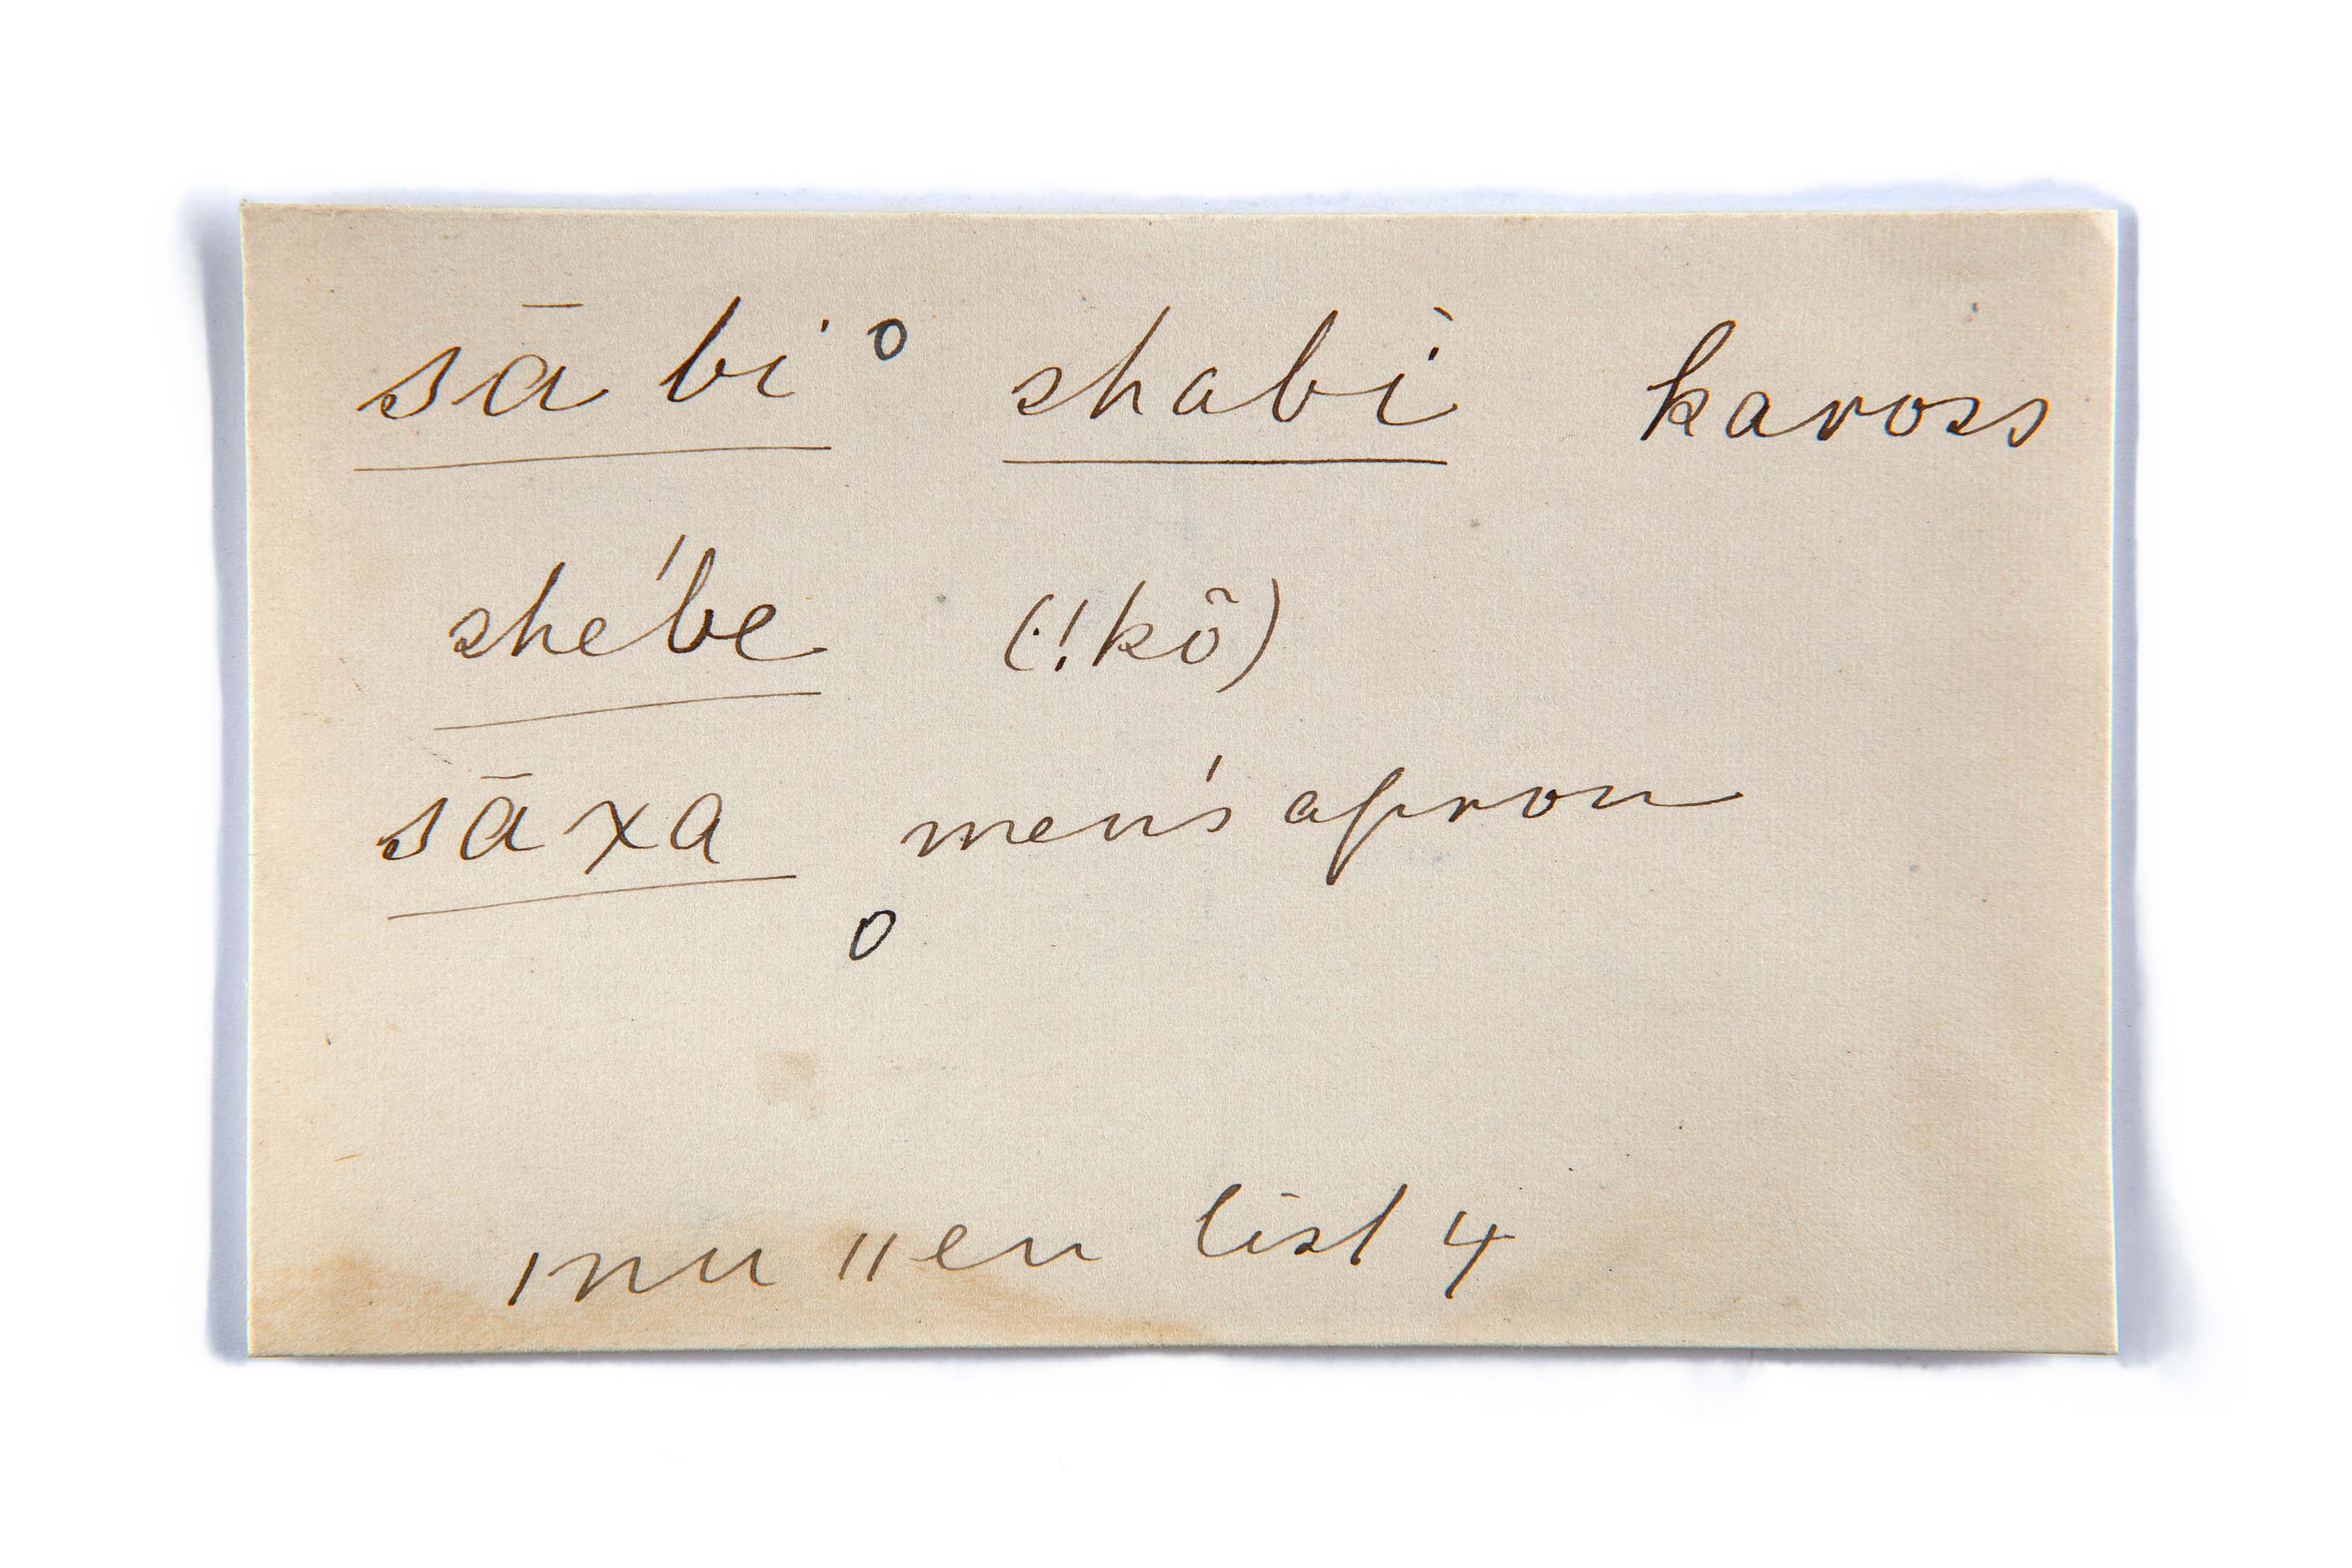 sā bi o shabi̇̀ kaross
she'be (!kõ)
sāxa men's apron
o
ǀnu ǁen list 4